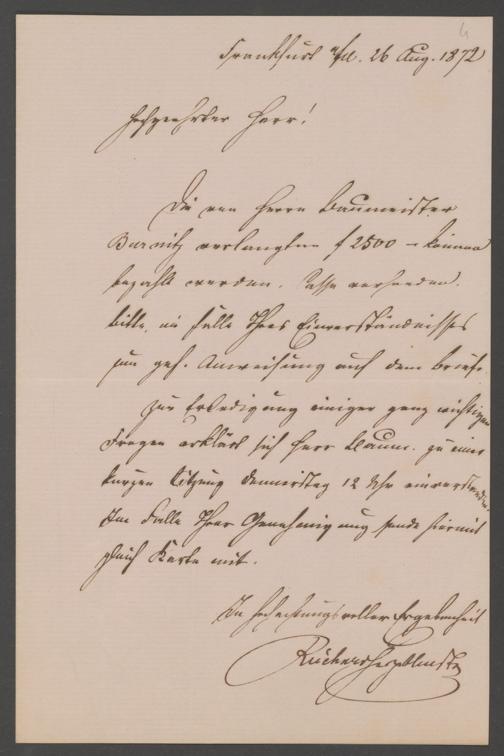 Frankfurt a/M. 26 Aug. 1872
Hochgeehrter Herr!
Die von Herrn Baumeister
Burnitz verlangten f 2500 – können
bezahlt werden. Casse vorhanden.
bitte, im Falle Ihres Einverständnisses
um gef. Anweisung auf dem Briefe.
Zur Erledigung einiger ganz wichtigen
Fragen erklärt sich Herr Baum. zu einer
kurzen Sitzung Donnerstag 12 Uhr einverstanden.
Im Falle Ihrer Genehmigung sende hiermit
gleich Karte mit.
In hochachtungsvoller Ergebenheit